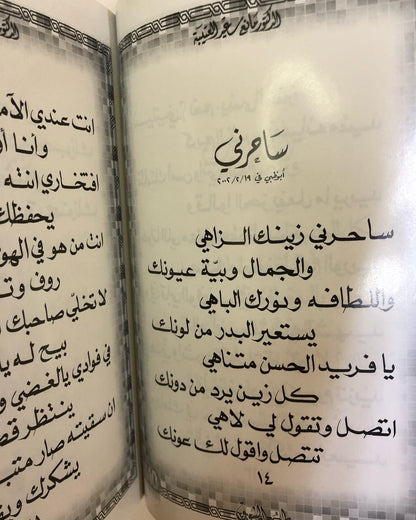 الدكتور مانع سعيد العتيبة
ساحرني
أبوظبي في ٢٠٠٢/٢/١٩
ساحرني زينك الزاهي
والجمال وبيّة عيونك
واللطافه ونورك الباهي
يستعير البدر من لونك
يا فريد الحسن متناهي
كل زين يرد من دونك
اتصل وتقول لي لاهي
تتصل واقول لك عونك
١٤
انت عندي
وأنا
افتخاري انته
يحفظك
انت من هو في
روف
لا تخلّي صاحبك
بيح له
في فوادي يالغضي
ينتظر
ان سقيته صار
يشكرك